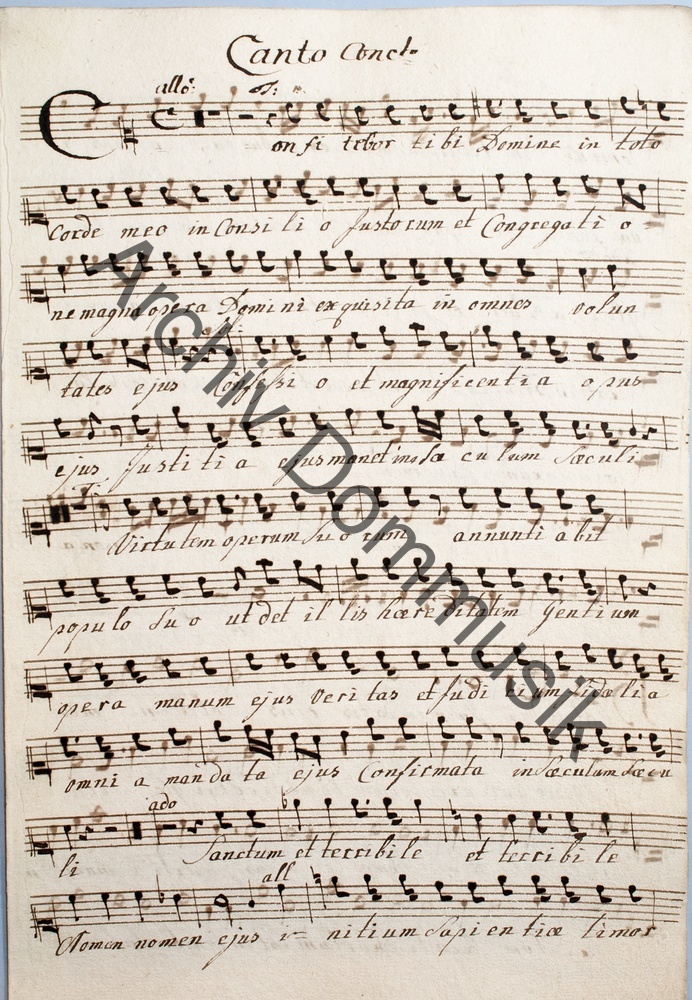 Canto Conc:to
allo: T: s.
Confi tebor tibi Domine in toto
Corde meo in Consi li o Justorum et Congregati o
ne magna opera Domini exquisita in omnes volun
tates ejus Confessi o et magnificentia opus
ejus Justi ti a ejus manet in Sæ cu lum sæculi
T:
Virtutem operum Su o rum annunti abit
populo Su o ut det il lis hære ditatem gentium
opera manum ejus veritas et Judi cium fidelia
omni a manda ta ejus Confirmata in Sæculum Sæcu
ado
li Sanctum et terribile et terribi le
all
Nomen nomen ejus i nitium Sapientiæ timor
Archiv Dommusik